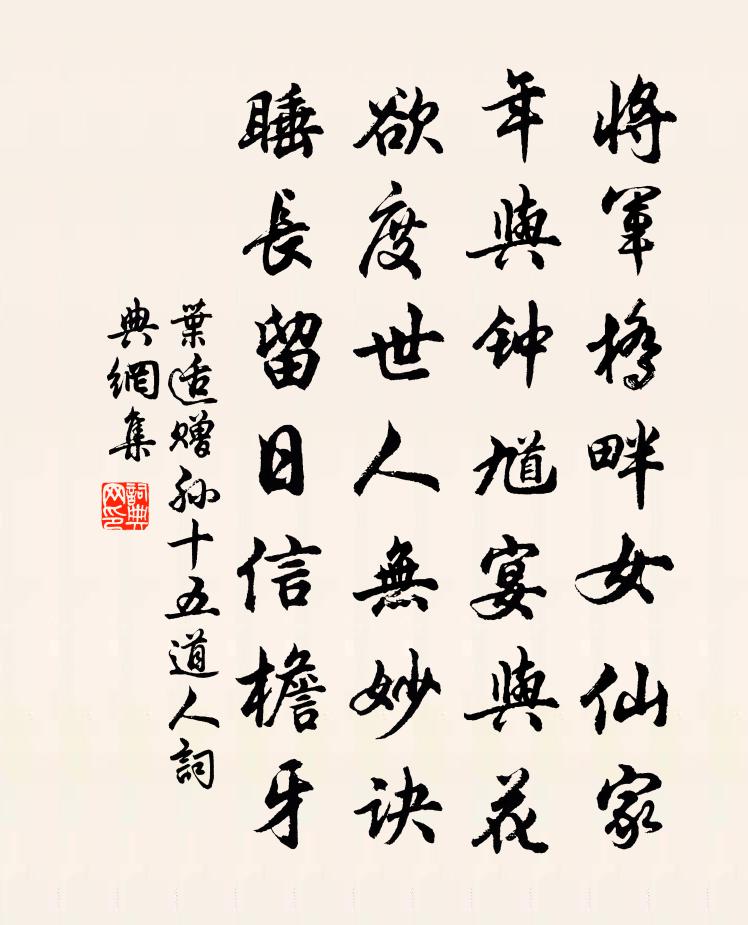 將軍橋畔女仙家
年與钟馗宴與花
欲度世人無妙诀
睡長留日信檐牙
葉适赠孫十五道人詞
典網集
詞典网印